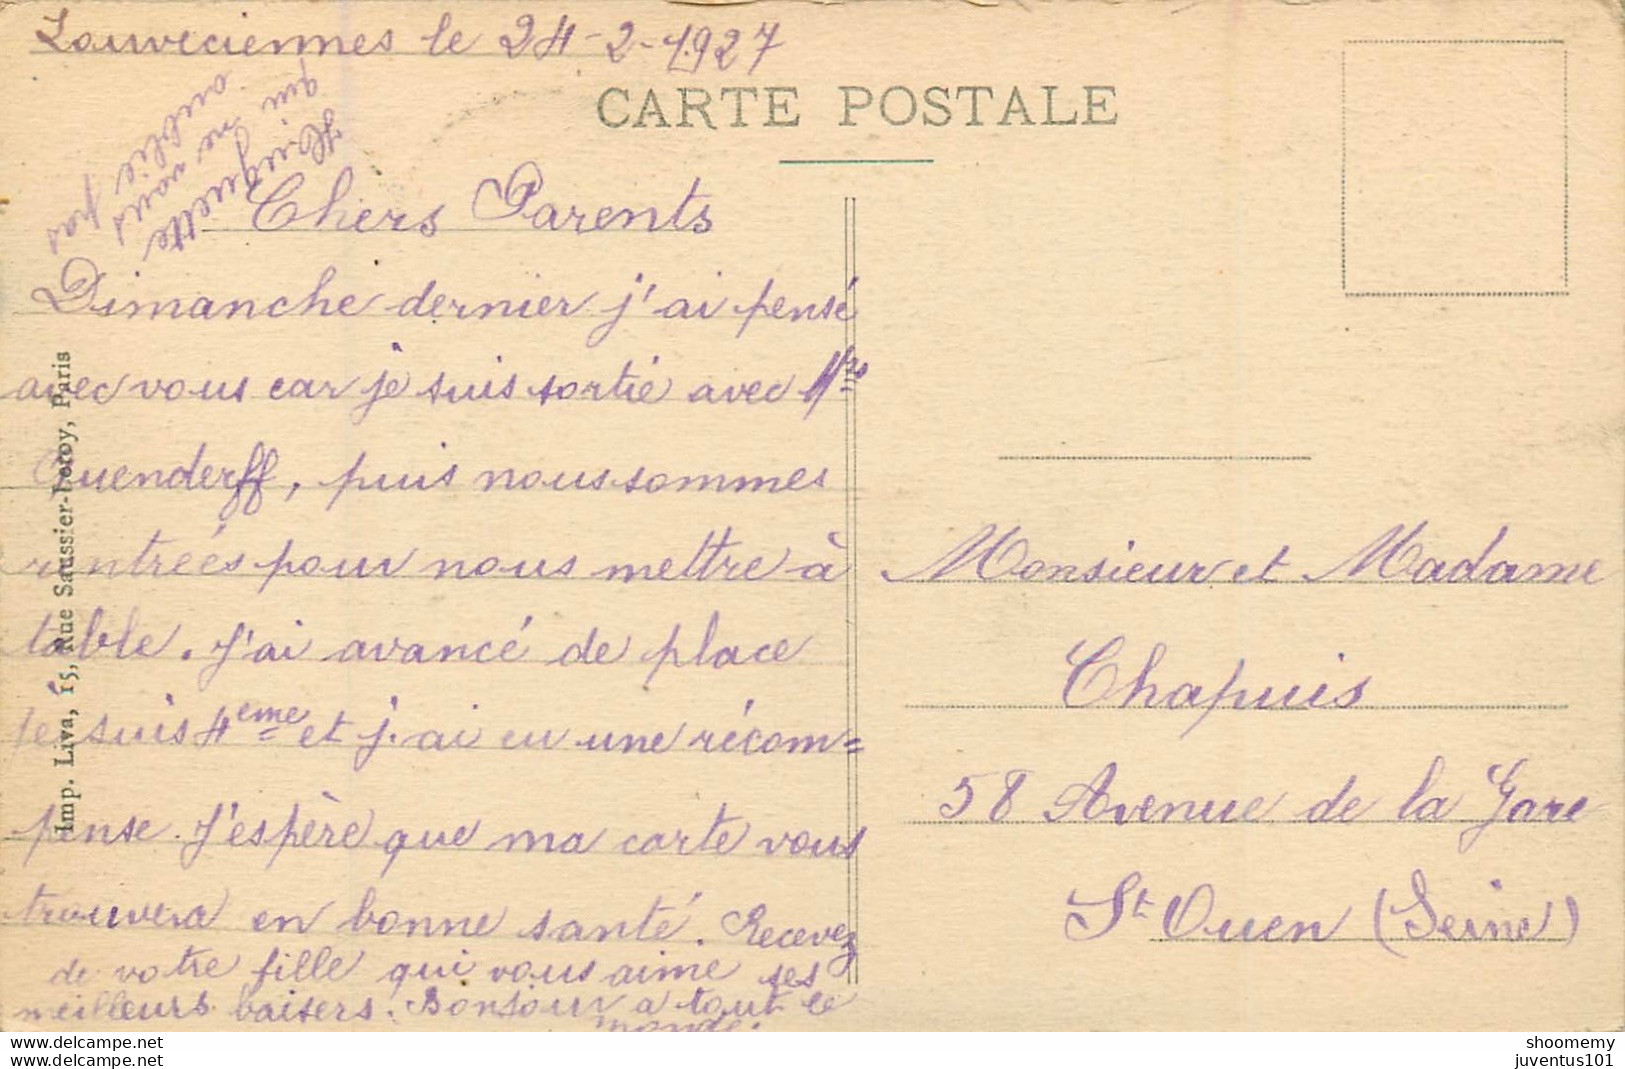 Louveciennes le 24-2-1927
CARTE POSTALE
Huguette
qui ne vous
oublie pas
Chers Parents
Dimanche dernier j'ai pensé
avec vous car je suis sortie avec
Quenderff, puis nous sommes
rentrées pour nous mettre à
table. J'ai avancé de place
je suis 4eme et j.ai eu une récom=
pense. J'espère que ma carte vous
trouvera en bonne santé. Recevez
de votre fille qui vous aime ses
meilleurs baisers. Bonjour a tout le
monde.
Monsieur et Madame
Chapuis
58 Avenue de la Gare
St Ouen (Seine)
Imp. Liva, 15, Rue Saussier-Leroy, Paris
more images at
more items at
shoomemy
juventus101